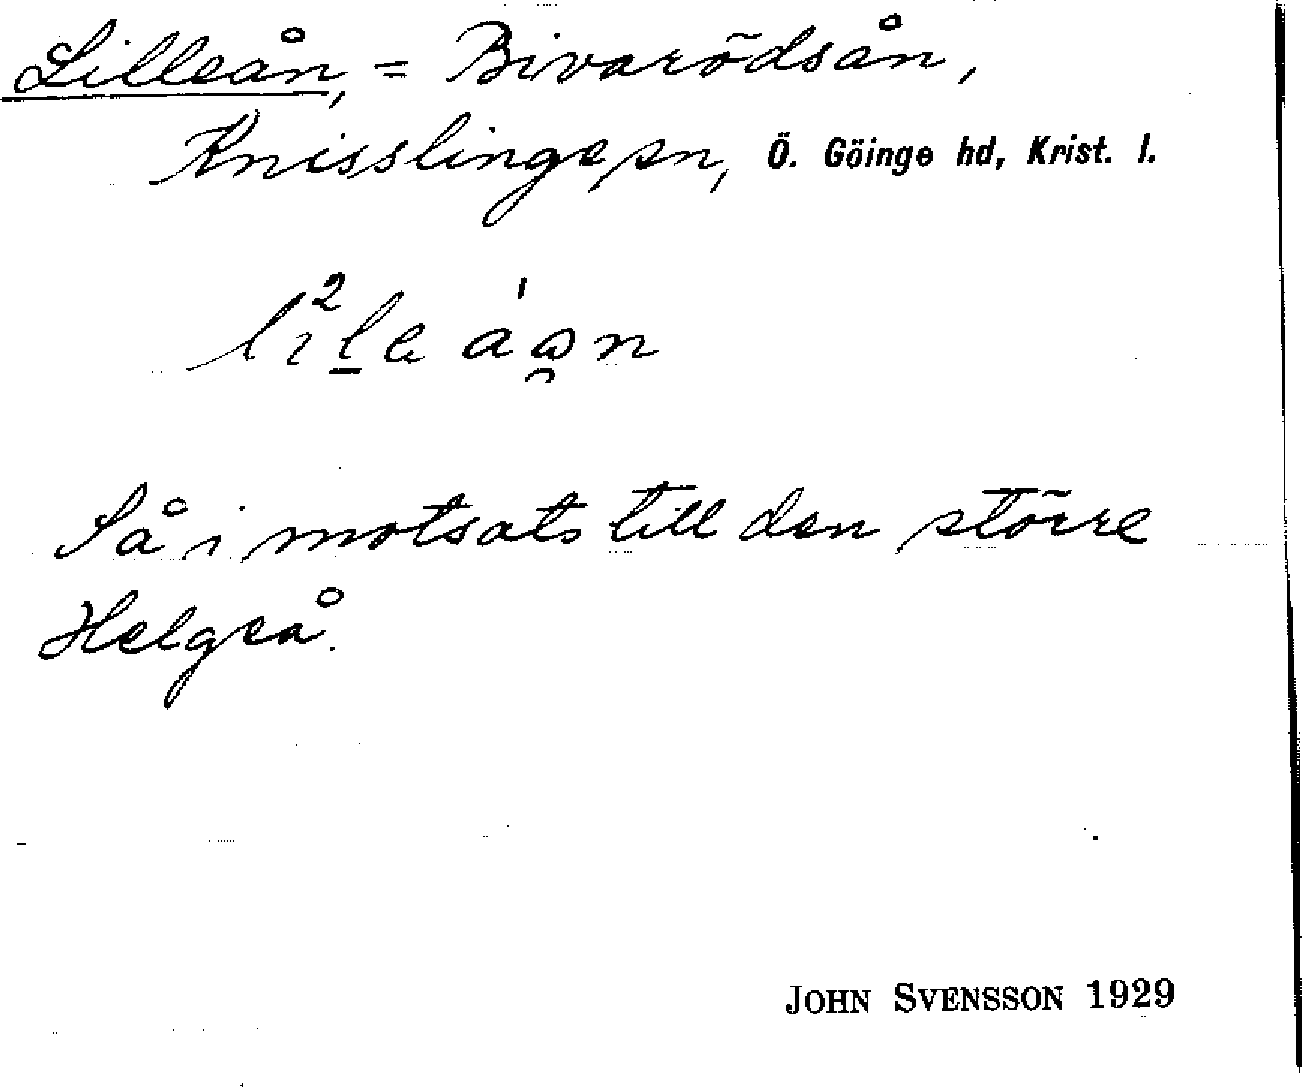 Lilleån, = Bivarödsån,
Knisslinge sn, Ö. Göinge hd, Krist. l.
Så i motsats till den större
Helgeå.
JOHN SVENSSON 1929